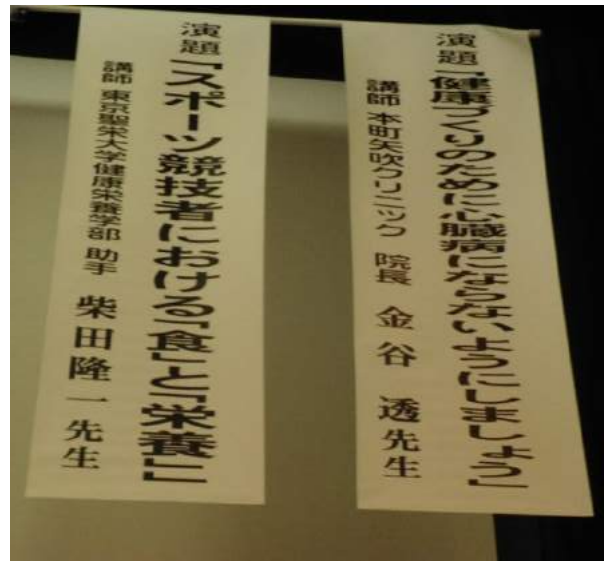 演題「健康づくりのために心臓病にならないようにしましょう」
講師 本町矢吹クリニック 院長 金谷 透先生
演題「スポーツ競技者における「食」と「栄養」」
講師 東京聖栄大学健康栄養学部 助手 柴田隆一先生